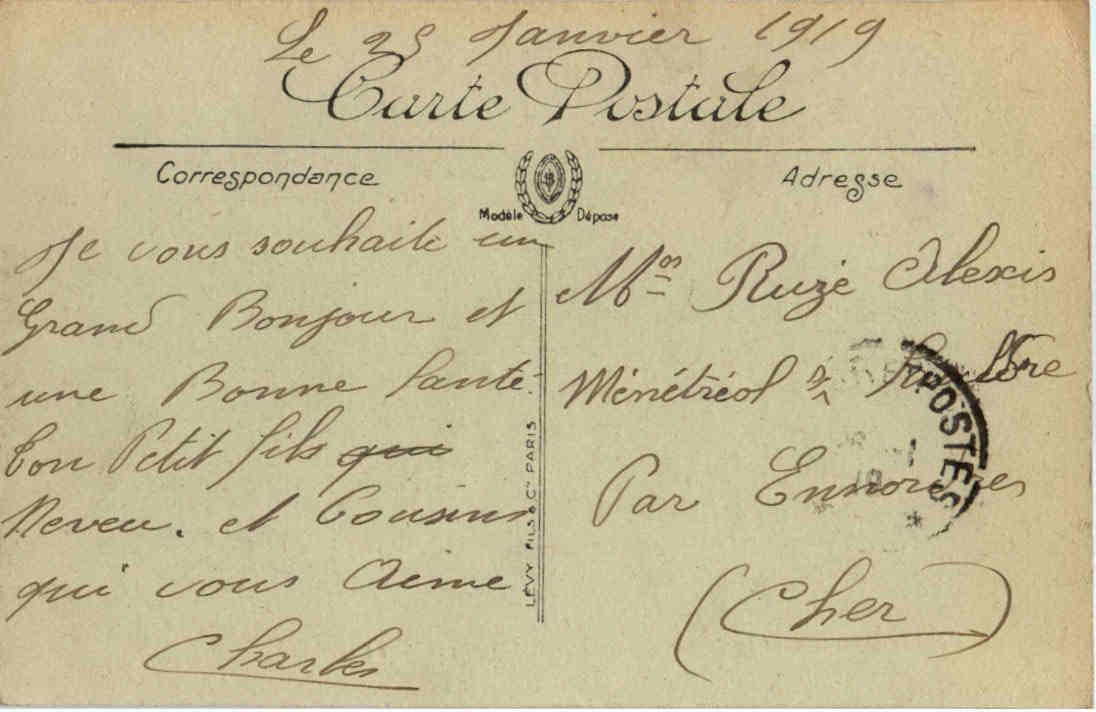 Le 25 Janvier 1919
Carte Postale
Correspondance
Adresse
Modèle Déposé
Je vous souhaite un
Grand Bonjour et
une Bonne Santé
ton Petit fils qui
Neveu. et Cousins
qui vous Aime
Charles
LÉVY FILS & Cie PARIS
Ruzé Alexis
Ménétréol s/
Par Ennordres
(Cher)
POSTES